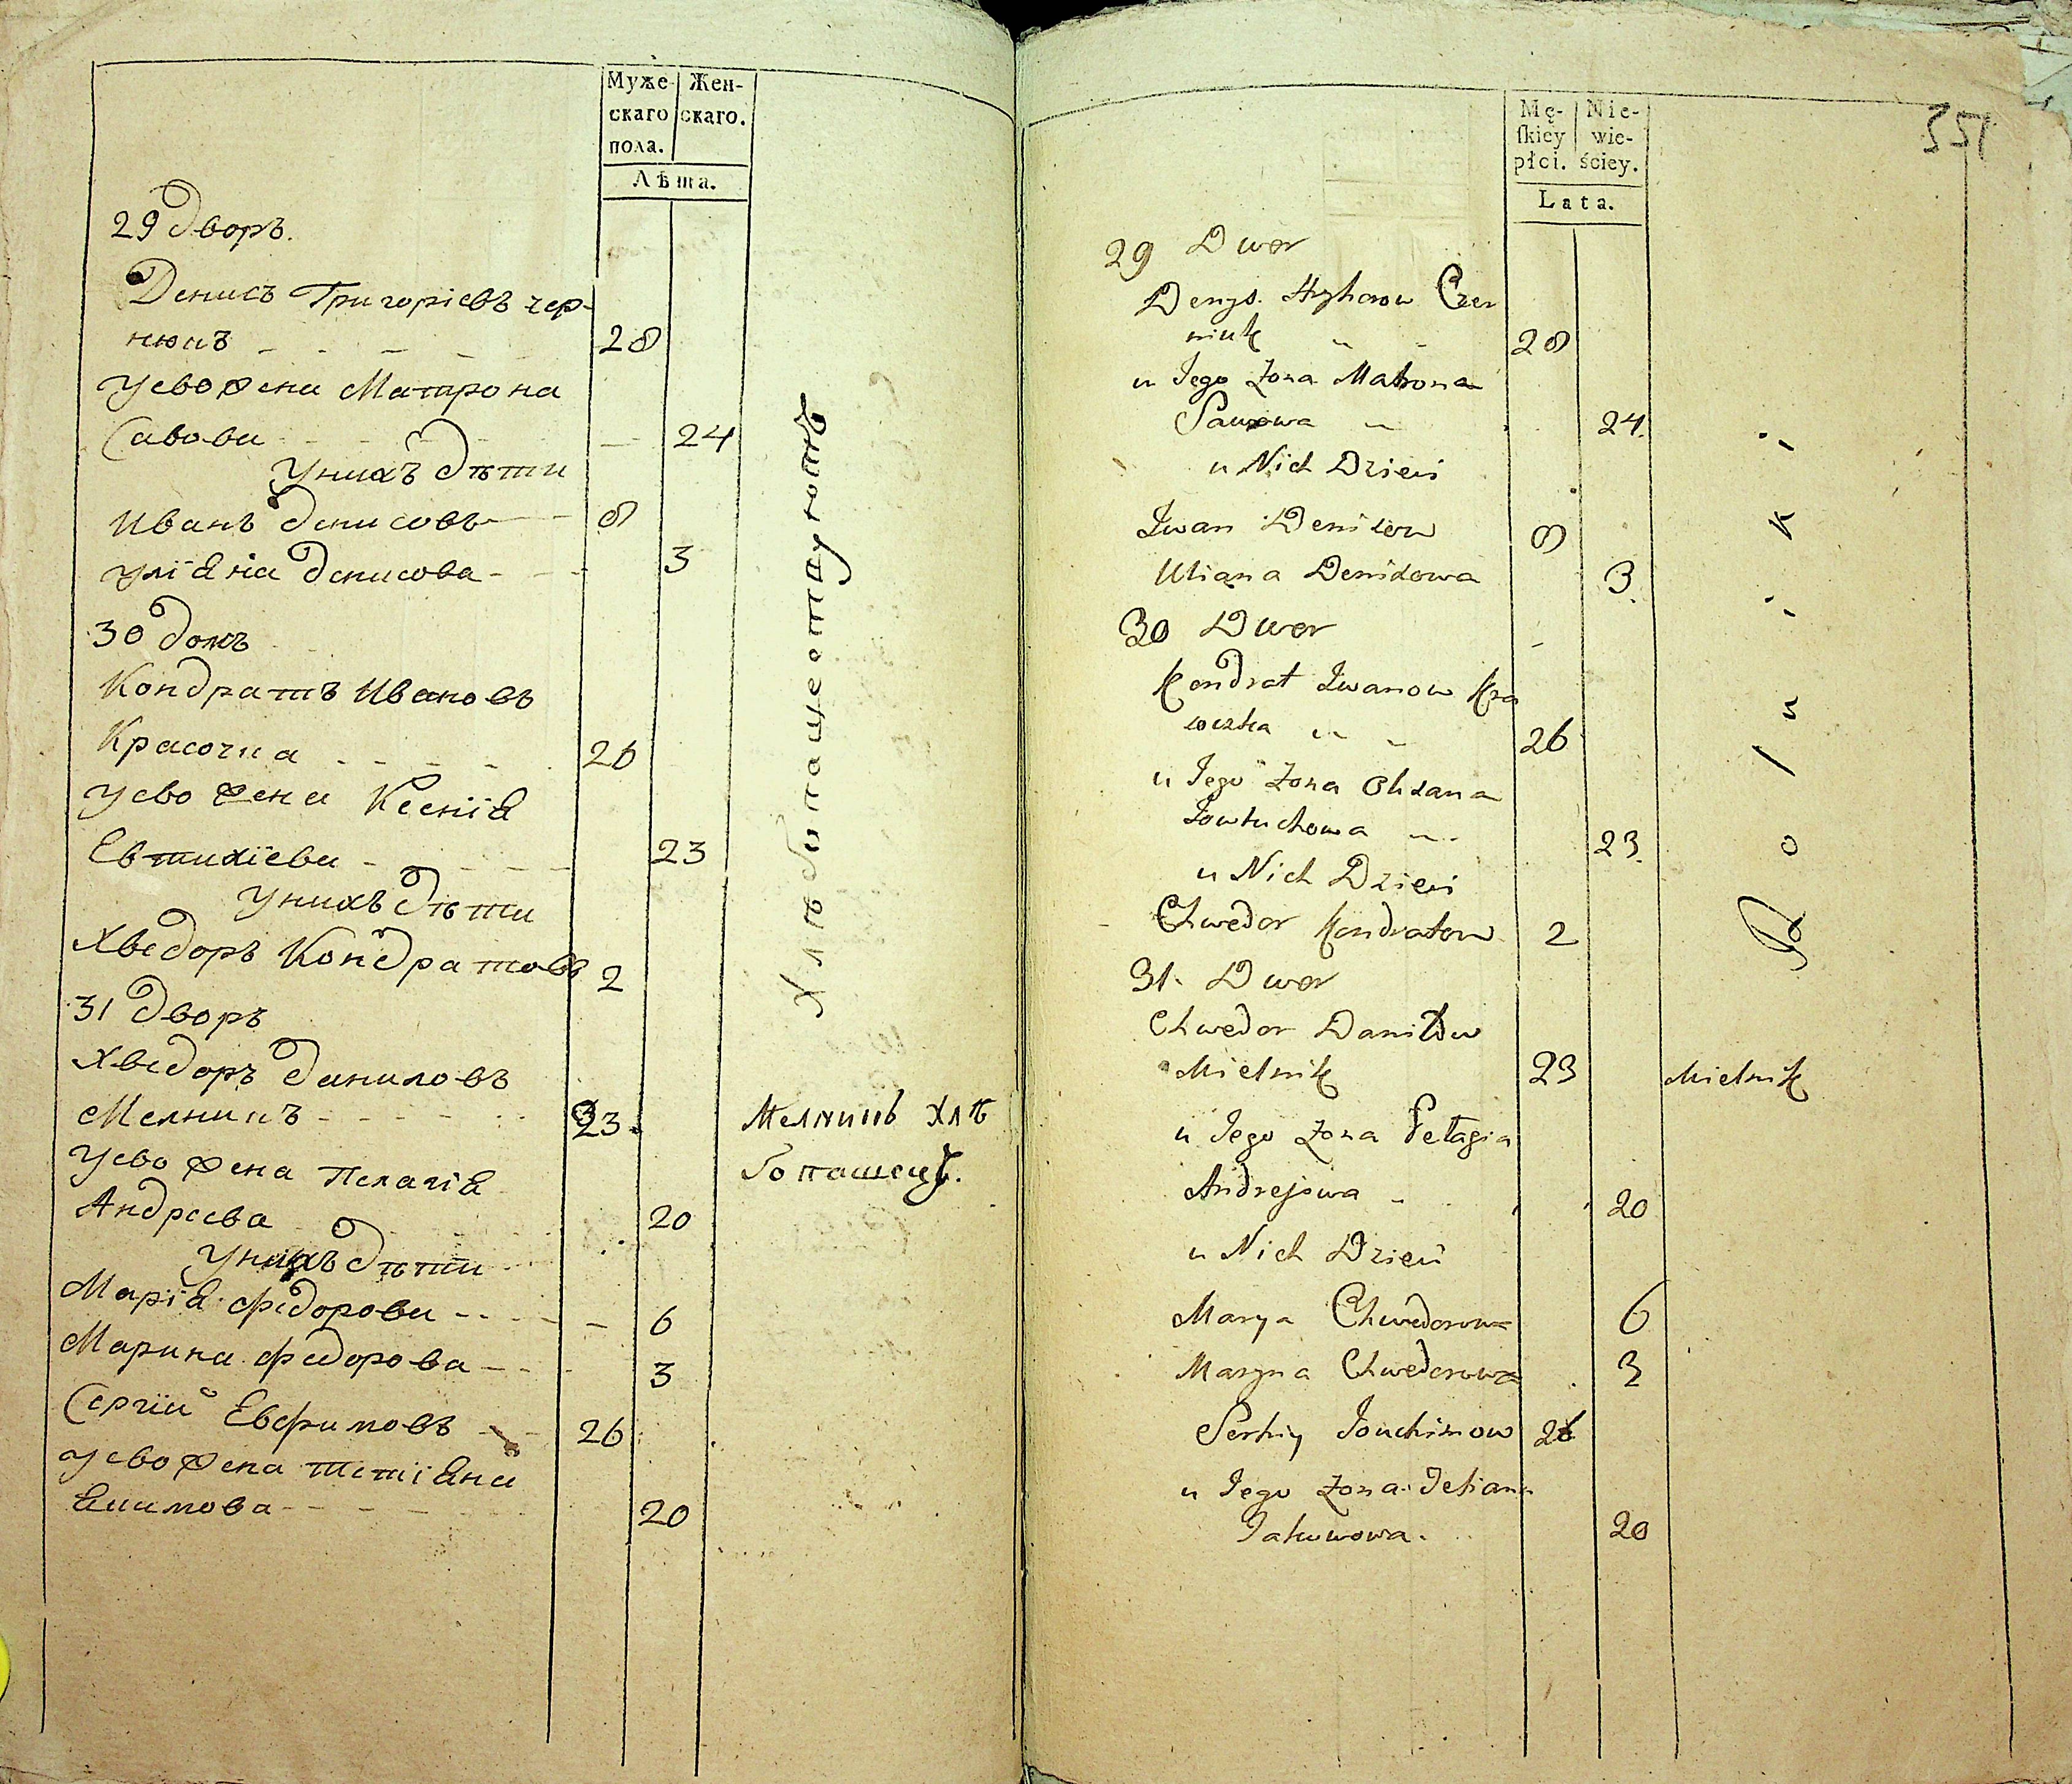 Муже- Жен-
скаго скаго.
пола.
Лѣта.
29 дворъ.
Денисъ Григоріевъ чер-
нюкъ 28
у ево жена Матрона
Савова 24
у нихъ дѣти
Иванъ Денисовъ 8
Уліяна Денисова 3
30 домъ
Кондратъ Ивановъ
Красочка 26
у ево жена Ксенія
Евтихіева 23
у нихъ дѣти
Хведоръ Кондратовъ 2
31 дворъ
Хведоръ Даниловъ
Мелникъ 23
у ево жена Пелагія
Андреева 20
у нихъ дѣти
Марія Федорова 6
Марина Федорова 3
Сергій Евфимовъ 26
у ево жена Тетіяна
Якимова 20
Хлѣбопашествуютъ
Мелникъ Хлѣ
бопашецъ.
351
Mę- Nie-
skiey wie-
płci. ściey.
Lata.
29 Dwor
Denys Hryhorow Czer
niuk 28
u Jego Zona Matrona
Sawowa 24
u Nich Dzieci
Iwan Denisow 8
Uliana Denisowa 3
30 Dwor
Kondrat Iwanow Kra
soczka 26
u Jego Zona Oksana
Jowtuchowa 23
u Nich Dzieci
Chwedor Kondratow 2
31. Dwor
Chwedor Daniłow
Mielnik 23 Mielnik
u Jego Zona Pełagia
Andrejowa 20
u Nich Dzieci
Marya Chwedorowa 6
Maryna Chwedorowa 3
Serhiy Jouchimow 26
u Jego Zona Tetiana
Jakimowa. 20
Rolniki